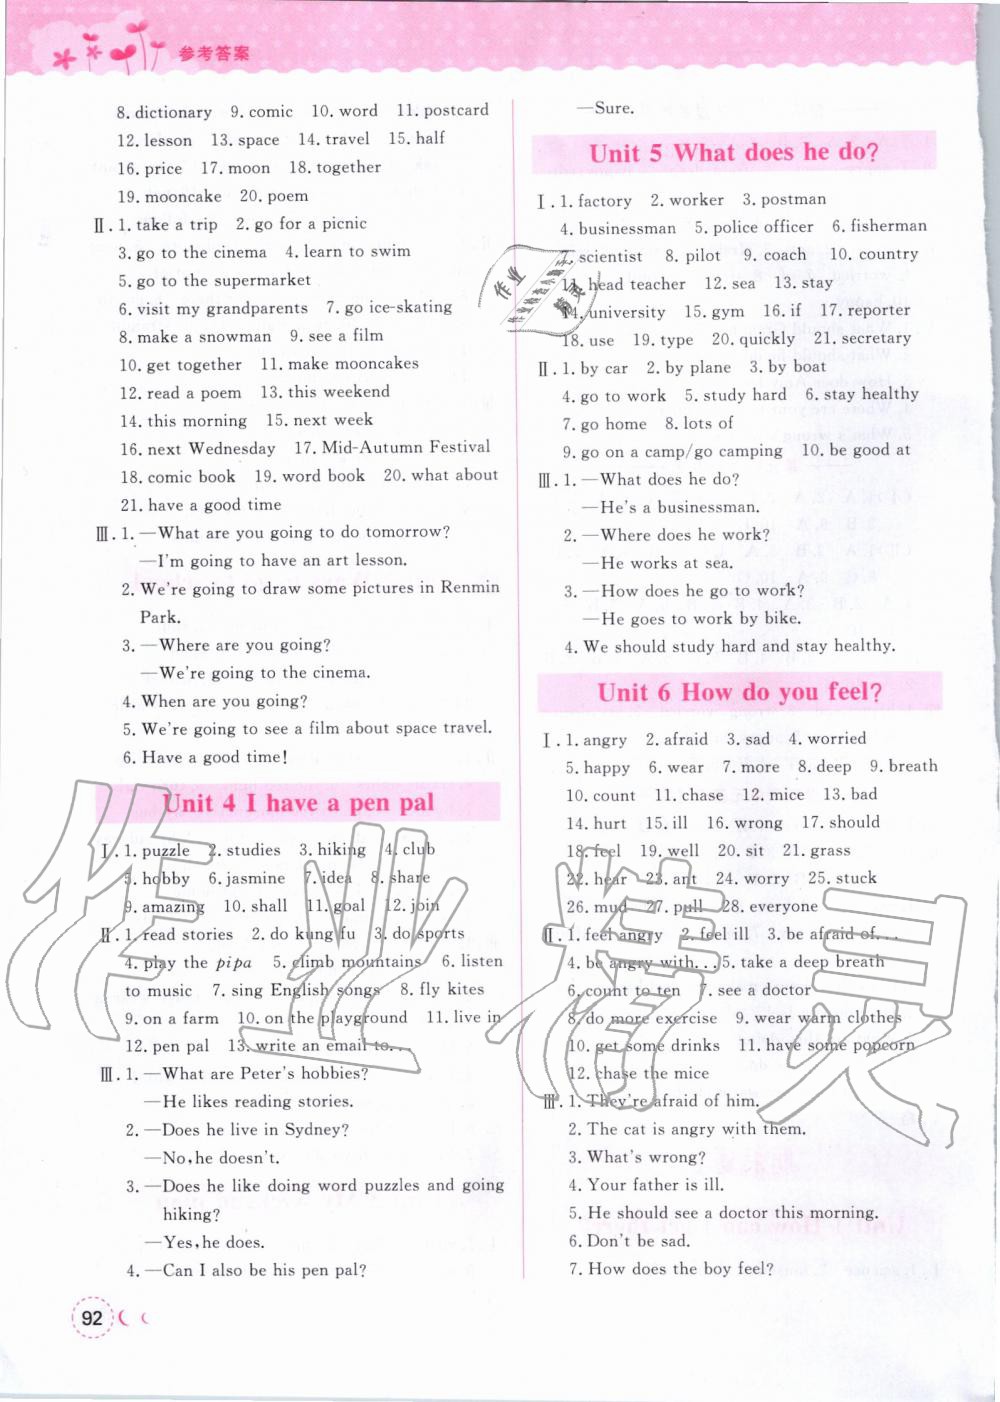 参考答案
8. dictionary 9. comic 10. word 11. postcard
12. lesson 13. space 14. travel 15. half
16. price 17. moon 18. together
19. mooncake 20. poem
Ⅱ. 1. take a trip 2. go for a picnic
3. go to the cinema 4. learn to swim
5. go to the supermarket
6. visit my grandparents 7. go ice-skating
8. make a snowman 9. see a film
10. get together 11. make mooncakes
12. read a poem 13. this weekend
14. this morning 15. next week
16. next Wednesday 17. Mid-Autumn Festival
18. comic book 19. word book 20. what about
21. have a good time
Ⅲ. 1. —What are you going to do tomorrow?
—I'm going to have an art lesson.
2. We're going to draw some pictures in Renmin
Park.
3. —Where are you going?
—We're going to the cinema.
4. When are you going?
5. We're going to see a film about space travel.
6. Have a good time!
Unit 4 I have a pen pal
Ⅰ. 1. puzzle 2. studies 3. hiking 4. club
5. hobby 6. jasmine 7. idea 8. share
9. amazing 10. shall 11. goal 12. join
Ⅱ. 1. read stories 2. do kung fu 3. do sports
4. play the pipa 5. climb mountains 6. listen
to music 7. sing English songs 8. fly kites
9. on a farm 10. on the playground 11. live in
12. pen pal 13. write an email to...
Ⅲ. 1. —What are Peter's hobbies?
—He likes reading stories.
2. —Does he live in Sydney?
—No, he doesn't.
3. —Does he like doing word puzzles and going
hiking?
—Yes, he does.
4. —Can I also be his pen pal?
—Sure.
Unit 5 What does he do?
Ⅰ. 1. factory 2. worker 3. postman
4. businessman 5. police officer 6. fisherman
7. scientist 8. pilot 9. coach 10. country
11. head teacher 12. sea 13. stay
14. university 15. gym 16. if 17. reporter
18. use 19. type 20. quickly 21. secretary
Ⅱ. 1. by car 2. by plane 3. by boat
4. go to work 5. study hard 6. stay healthy
7. go home 8. lots of
9. go on a camp/go camping 10. be good at
Ⅲ. 1. —What does he do?
—He's a businessman.
2. —Where does he work?
—He works at sea.
3. —How does he go to work?
—He goes to work by bike.
4. We should study hard and stay healthy.
Unit 6 How do you feel?
Ⅰ. 1. angry 2. afraid 3. sad 4. worried
5. happy 6. wear 7. more 8. deep 9. breath
10. count 11. chase 12. mice 13. bad
14. hurt 15. ill 16. wrong 17. should
18. feel 19. well 20. sit 21. grass
22. hear 23. ant 24. worry 25. stuck
26. mud 27. pull 28. everyone
Ⅱ. 1. feel angry 2. feel ill 3. be afraid of...
4. be angry with... 5. take a deep breath
6. count to ten 7. see a doctor
8. do more exercise 9. wear warm clothes
10. get some drinks 11. have some popcorn
12. chase the mice
Ⅲ. 1. They're afraid of him.
2. The cat is angry with them.
3. What's wrong?
4. Your father is ill.
5. He should see a doctor this morning.
6. Don't be sad.
7. How does the boy feel?
92
作业精灵